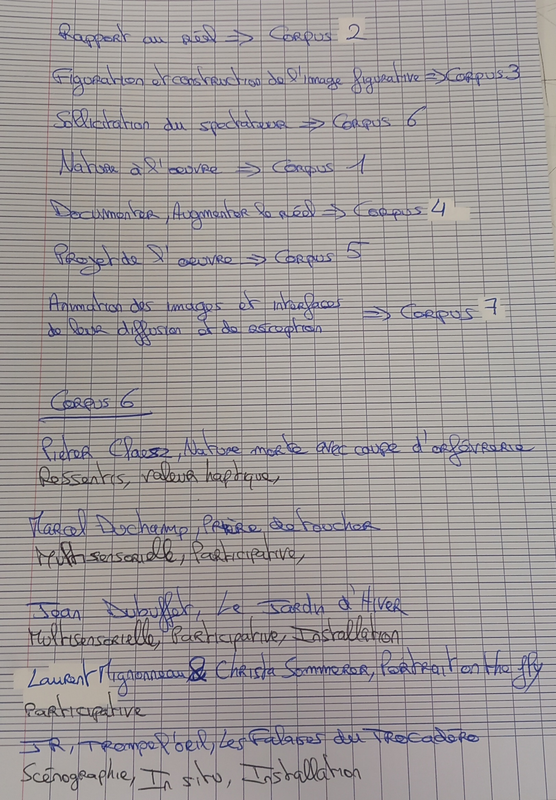 Rapport au réel => Corpus 2
Figuration et construction de l'image figurative => Corpus 3
Sollicitation du spectateur => Corpus 6
Nature à l'oeuvre => Corpus 1
Documenter, Augmenter le réel => Corpus 4
Projet de l'oeuvre => Corpus 5
Animation des images et interfaces
de leur diffusion et de réception => Corpus 7
Corpus 6
Pieter Claesz, Nature morte avec coupe d'orfèvrerie
Ressentis, valeur haptique,
Marcel Duchamp, Prière de toucher
Multisensorielle, Participative,
Jean Dubuffet, Le Jardin d'Hiver
Multisensorielle, Participative, Installation
Laurent Mignonneau & Christa Sommerer, Portrait on the fly
Participative
JR, Trompe l'oeil, Les Falaises du Trocadéro
Scénographie, In situ, Installation